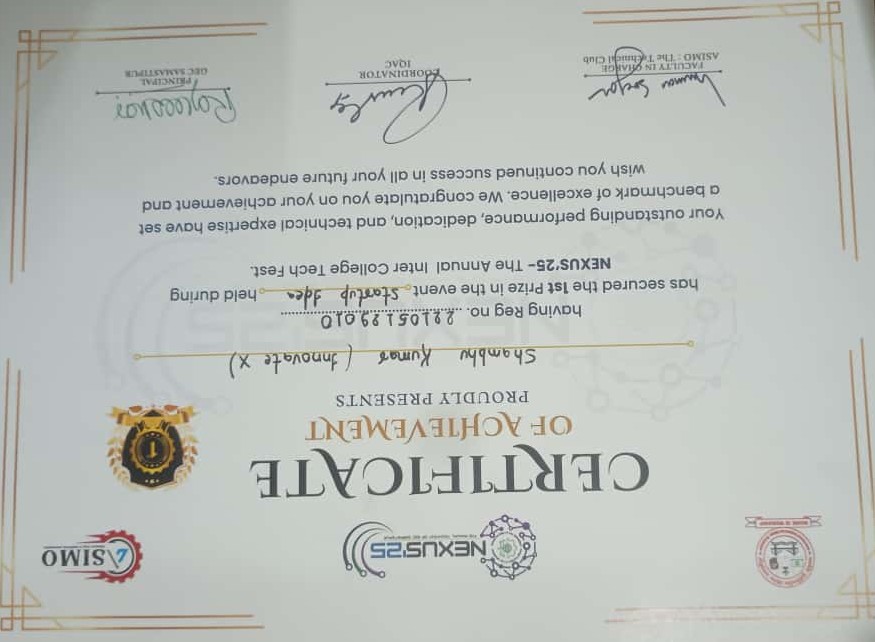 WORK IS WORSHIP
NEXUS'25
THE ANNUAL TECHFEST OF GEC SAMASTIPUR
ASIMO
CERTIFICATE
OF ACHIEVEMENT
1
PROUDLY PRESENTS
Shambhu Kumar (Innovate X)
having Reg no. 22105129010
has secured the 1st Prize in the event Startup Idea held during
NEXUS'25- The Annual Inter College Tech Fest.
Your outstanding performance, dedication, and technical expertise have set
a benchmark of excellence. We congratulate you on your achievement and
wish you continued success in all your future endeavors.
FACULTY IN CHARGE
ASIMO : The Technical Club
COORDINATOR
IQAC
PRINCIPAL
GEC SAMASTIPUR